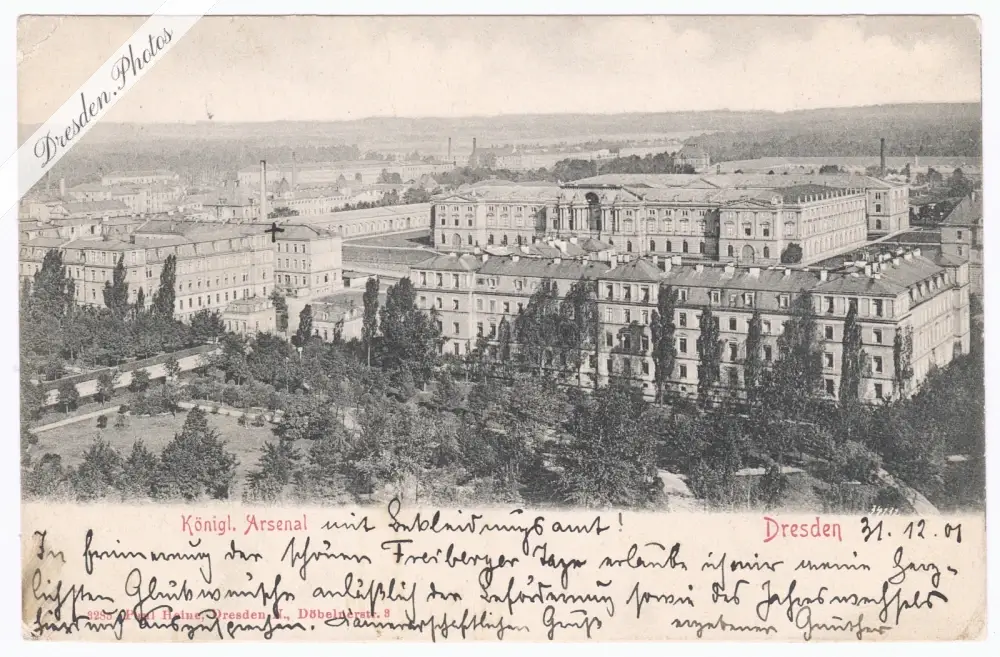 Dresden.Photos
Königl. Arsenal mit Bekleidungsamt! Dresden 31.12.01
In Erinnerung der schönen Freiberger Tage erlaube ich mir meine herz-
lichsten Glückwünsche anläßlich der Beförderung sowie des Jahreswechsels
hierdurch auszusprechen. Kameradschaftlichen Gruß ergebener Günther
3285 Paul Heine, Dresden N., Döbelnerstr. 3